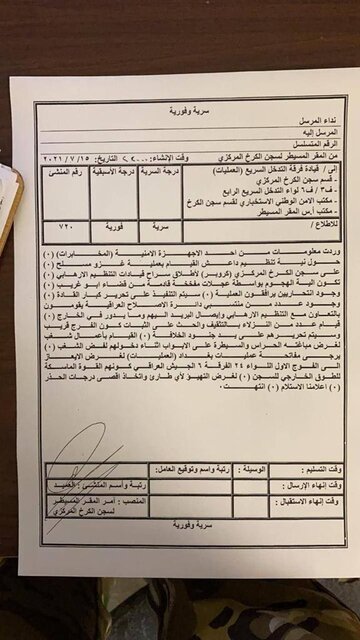 سرية وفورية
نداء المرسل
المرسل إليه
الرقم المتسلسل
من المقر المسيطر لسجن الكرخ المركزي
وقت الإنشاء: ٢٠٠٠
التاريخ: ٢٠٢١/٧/١٥
إلى / قيادة فرقة التدخل السريع (العمليات)
- قسم سجن الكرخ المركزي
- ف٣ / ف٦ لواء التدخل السريع الرابع
- مكتب الامن الوطني الاستخباري لقسم سجن الكرخ
- مكتب أ.س المقر المسيطر
للاطلاع /
درجة السرية
درجة الأسبقية
رقم المنشئ
سرية
فورية
٧٢٠
وردت معلومات من احد الاجهزة الامنية (المخابرات) (٠)
حول نية تنظيم داعش القيام بعملية غزو مسلح (٠)
على سجن الكرخ المركزي (كروبر) لاطلاق سراح قيادات التنظيم الارهابي (٠)
تكون الية الهجوم بواسطة عجلات مفخخة قادمة من قضاء ابو غريب (٠)
وجود انتحاريين يرافقون العملية (٠) سيتم التنفيذ على تحرير كبار القادة (٠)
وجود عدد من منتسبي دائرة الاصلاح العراقية يقومون
بالتعاون مع التنظيم الارهابي وإيصال البريد اليهم وما يدور في الخارج (٠)
قيام عدد من النزلاء بالتثقيف والحث على الثبات كون الفرج قريب
وسيتم تحريرهم على يد جنود الخلافة (٠) القيام بأعمال شغب
لغرض مباغتة الحراس والسيطرة على الابواب اثناء دخولهم لفض الشغب (٠)
يرجى مفاتحة عمليات بغداد (العمليات) لغرض الايعاز
الى الفوج الاول اللواء ٢٤ الفرقة ٦ الجيش العراقي كونهم القوة الماسكة
للطوق الخارجي للسجن (٠) لغرض التهيؤ لأي طارئ واتخاذ اقصى درجات الحذر
(٠) اعلامنا الاستلام (٠) انتهت
وقت التسليم :
الوسيلة :
رتبة واسم وتوقيع العامل:
وقت إنهاء الإرسال :
رتبة وأسم المنشئ : العميد
وقت إنهاء الاستقبال :
المنصب : آمر المقر المسيطر
لسجن الكرخ المركزي
سرية وفورية